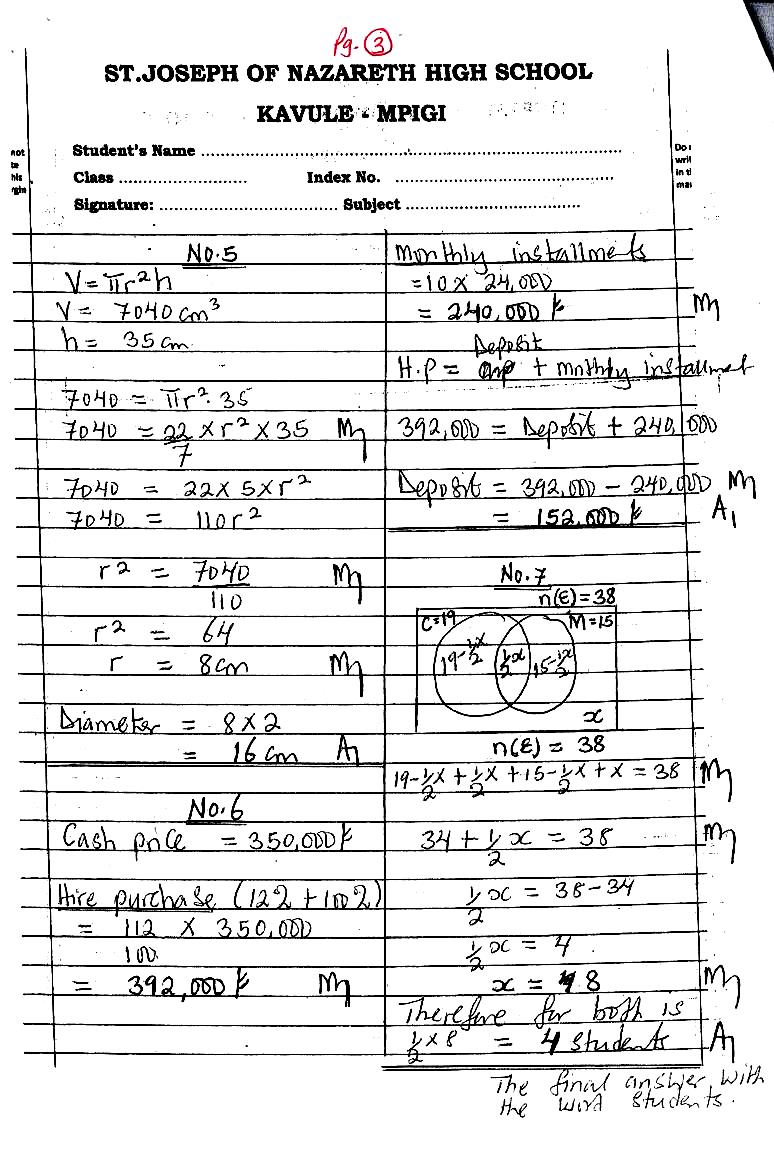 Pg. 3
ST.JOSEPH OF NAZARETH HIGH SCHOOL
KAVULE - MPIGI
Student's Name
Class Index No.
Signature: Subject
not
te
his
rgin
Do
writ
in t
mar
No.5
V = πr²h
V = 7040 cm³
h = 35 cm
7040 = πr². 35
7040 = 22/7 × r² × 35 M1
7040 = 22 × 5 × r²
7040 = 110r²
r² = 7040/110 M1
r² = 64
r = 8cm M1
Diameter = 8 × 2
= 16 cm A1
No.6
Cash price = 350,000
Hire purchase (12% + 100%)
= 112/100 × 350,000
= 392,000 M1
Monthly installments
= 10 × 24,000
= 240,000 M1
Deposit
H.P = + monthly installment
392,000 = Deposit + 240,000
Deposit = 392,000 - 240,000 M1
= 152,000 A1
No.7
n(Ɛ) = 38
C=19 M=15
19-½x ½x 15-½x
x
n(Ɛ) = 38
19-½x + ½x + 15-½x + x = 38 M1
34 + ½x = 38 M1
½x = 38-34
½x = 4
x = 8 M1
Therefore for both is
½ × 8 = 4 students A1
The final answer with
the word students.